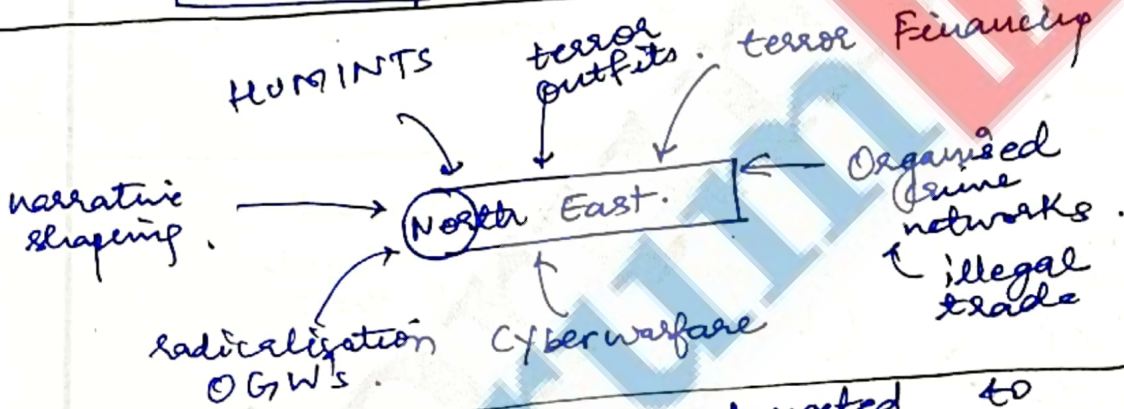 HUMINTS
terror
outfits.
terror Financing
narrative
shaping.
North East.
Organised
crime
networks.
illegal
trade
radicalisation
OGW's.
Cyberwarfare
to